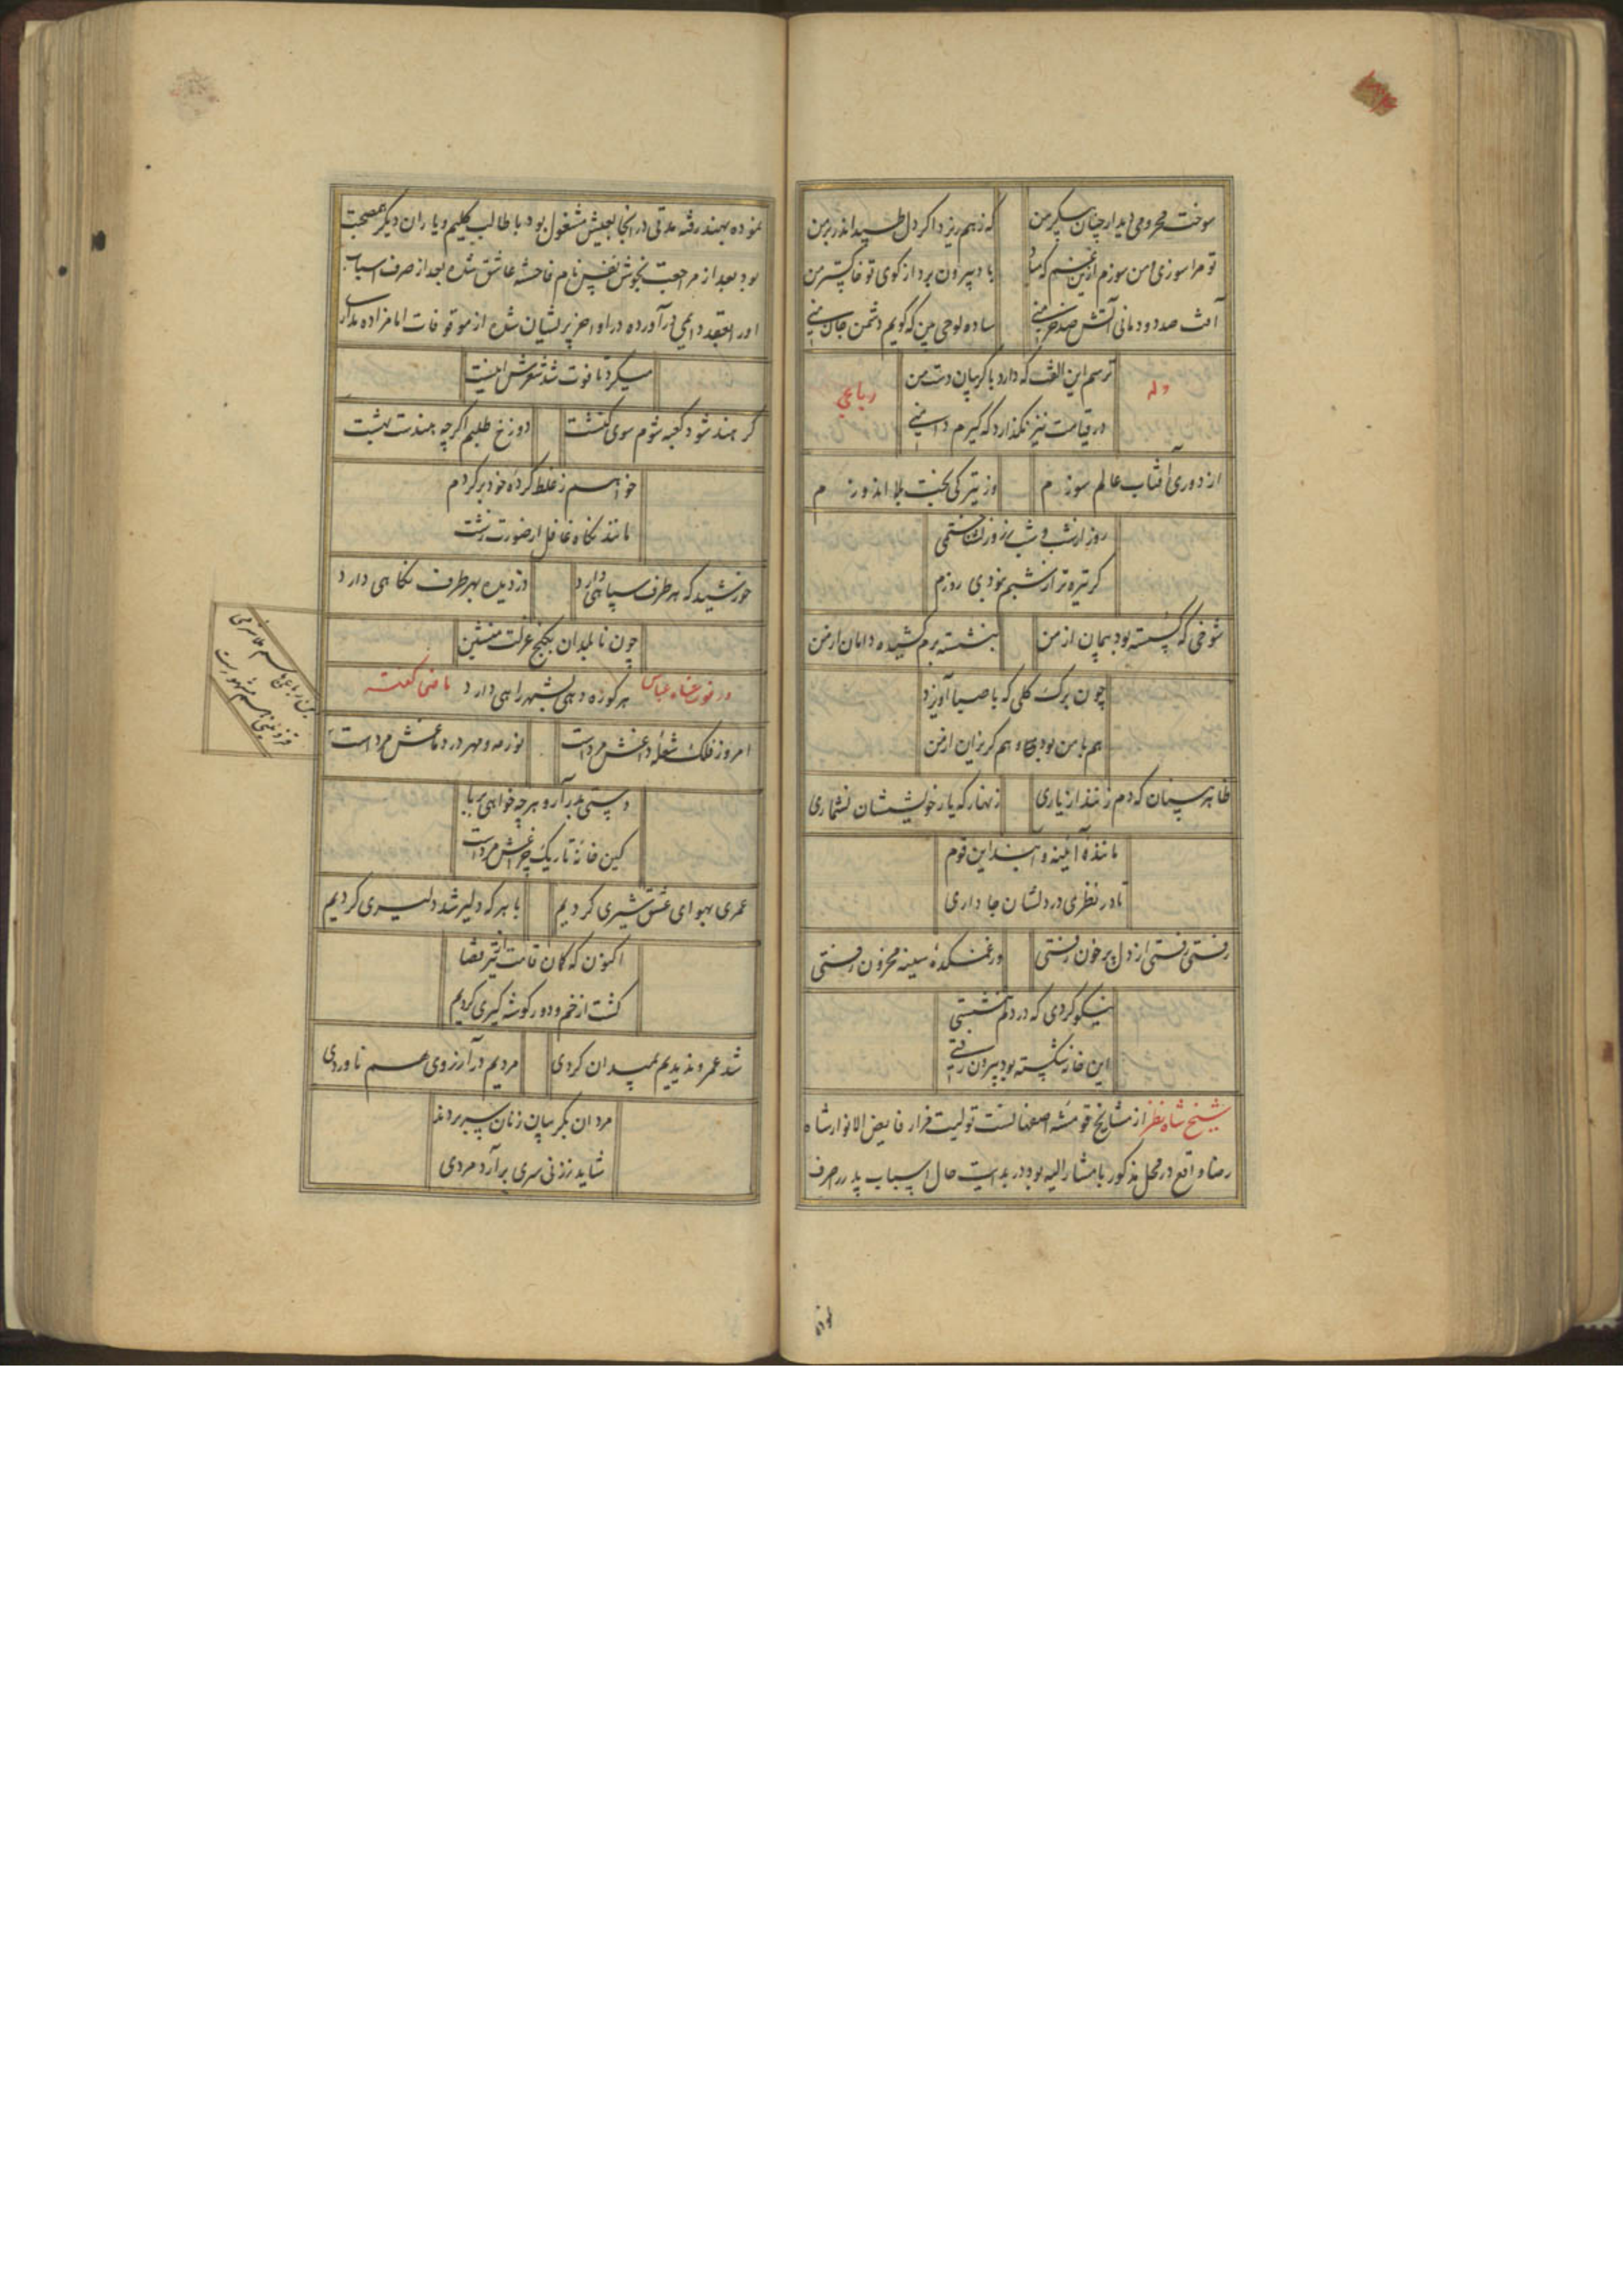 سوخت محرومی دیدار چنان پیکر من
که ز هم ریزد اگر دل طپد اندر بر من
تو مرا سوزی و من سوزم ازین غم که مباد
باد بیرون برد از کوی تو خاکستر من
آفت صد دودمانی آتش صد خرمنی
ساده لوحی بین که گویم دشمن جان منی
وله
ترسم این الفت که دارد با گریبان دست من
رباعی
در قیامت نیز نگذارد که گیرم دامنی
از دوری آفتاب عالم سوزم
وز تیرگی بخت بلا اندوزم
روز از شب و شب ز روز نشناختمی
گر تیره تر از شبم نبودی روزم
شوخی که گسسته بود پیمان از من
بنشسته برم کشیده دامان از من
چون برگ گلی که با صبا آویزد
هم با من بود و هم گریزان از من
ظاهر بینان که دم زنند از یاری
زنهار که یار خویششان نشماری
مانند آئینه و آبند این قوم
تا در نظری در دلشان جا داری
رفتی رفتی از دل پر خون رفتی
وز غمکده سینه محزون رفتی
نیکو کردی که در دلم ننشستی
این خانه شکسته بود بیرون رفتی
شیخ شاه نظر از مشایخ قومشه اصفهانست تولیت مزار فایض الانوار شاه
رضا واقع در محل مذکور با مشارالیه بود در بدایت حال اسباب پدر را صرف
نموده بهند رفته مدتی در آنجا بعیش مشغول بود با طالب کلیم و یاران دیگر همصحبت
بود بعد از مراجعت بخوش نفس نام فاحشه عاشق شده بعد از صرف اسباب
او را بعقد دایمی در آورده در اواخر پریشان شده از موقوفات امامزاده مدار
میکرد تا فوت شد شعرش اینست
گر هند شود کعبه شوم سوی کنشت
دوزخ طلبم اگر چه هندست بهشت
خواهم ز غلط کرده خود برگردم
مانند نگاه غافل از صورت زشت
خورشید که هر طرف سپاهی دارد
دزدیده بهر طرف نگاهی دارد
چون نابلدان بکنج عزلت منشین
در فوت شاه عباس ماضی گفته
هر کوره دهی بشهر راهی دارد
این رباعی باسم ملا شرقی
قزوینی هم مشهورست
امروز فلک شعله داغش مرداست
نور مه و مهر در دماغش مرداست
دستی بدر آر و هر چه خواهی بربا
کین خانه تاریک چراغش مرداست
عمری بهوای عشق شیری کردیم
با هر که دلیر شد دلیری کردیم
اکنون که کمان قامت از تیر قضا
گشت از خم و دور گوشه گیری کردیم
شد عمر و ندیدیم بمیدان گردی
مردیم در آرزوی هم ناوردی
مردان بگریبان زنان سر بردند
شاید ز زنی سری بر آرد مردی